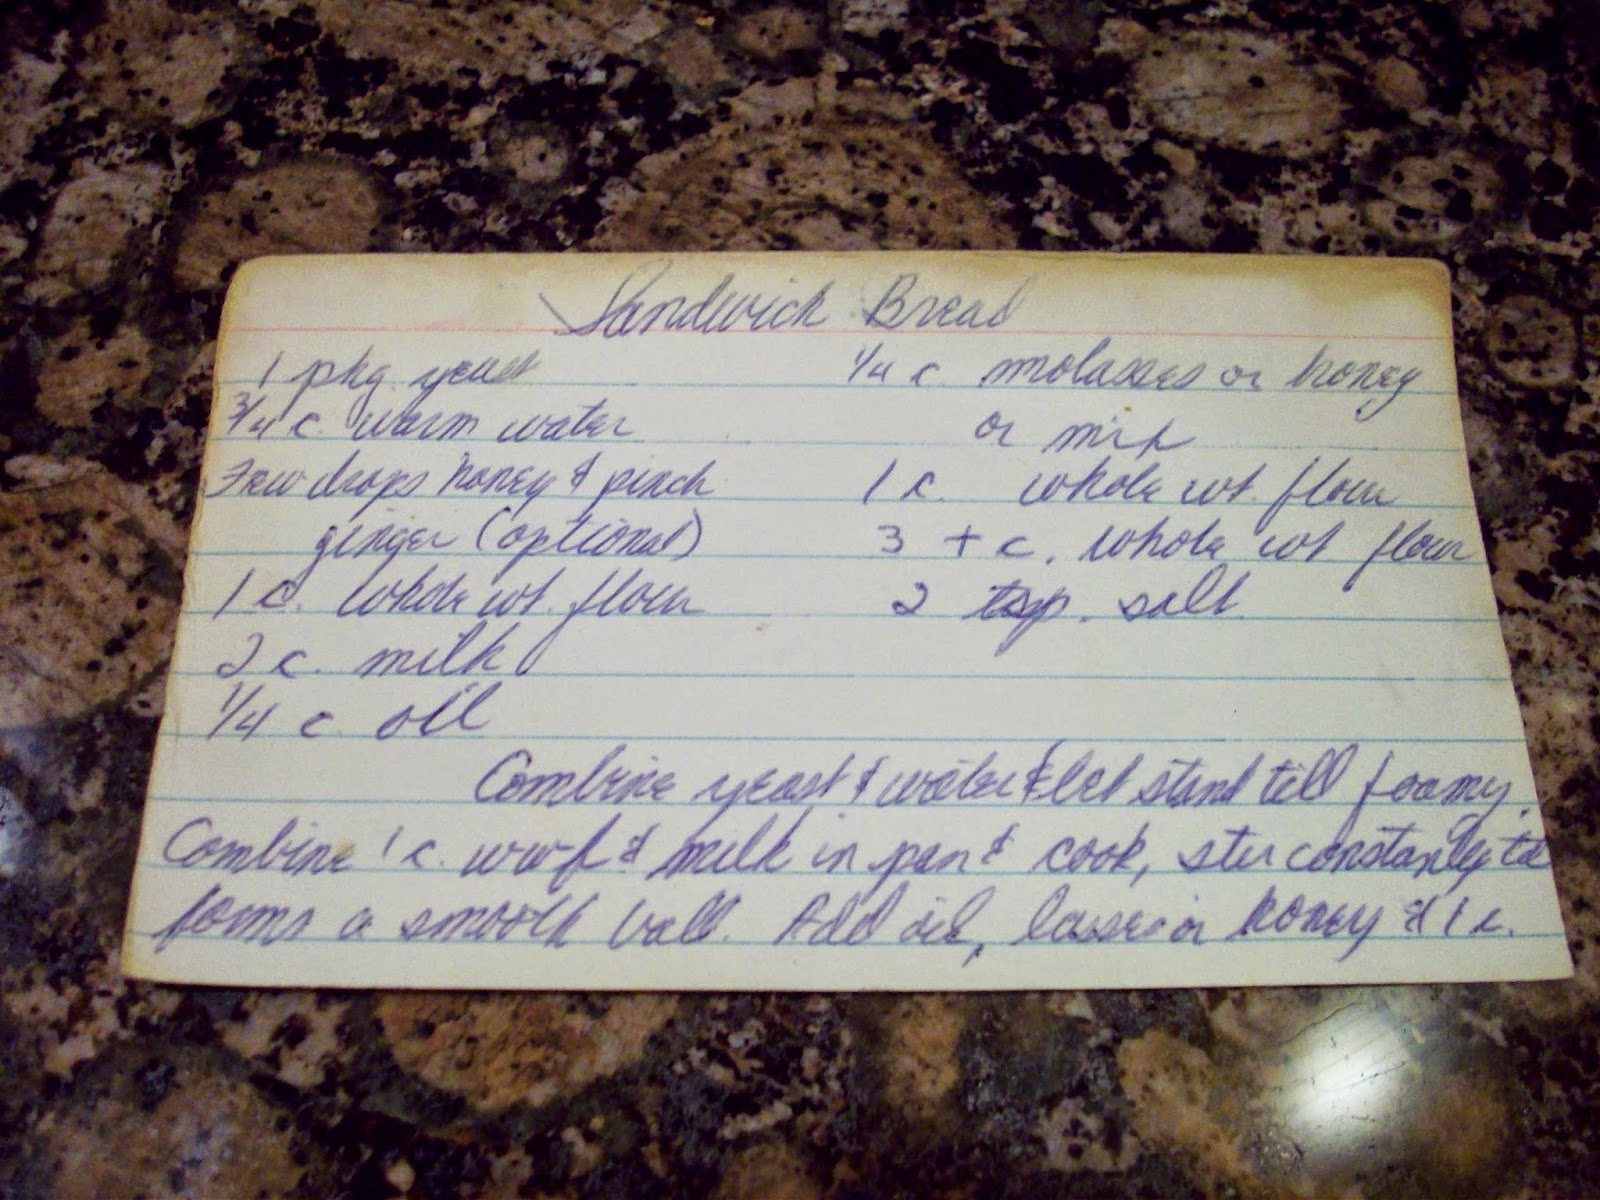 Sandwich Bread
1 pkg. yeast
3/4 c. warm water
Few drops honey & pinch
ginger (optional)
1 c. whole wt. flour
2 c. milk
1/4 c. oil
1/4 c. molasses or honey
or mix
1 c. whole wt. flour
3 + c. whole wt flour
2 tsp. salt
Combine yeast & water & let stand till foamy.
Combine 1 c. wwf & milk in pan & cook, stir constantly til
forms a smooth ball. Add oil, lasses or honey & 1 c.